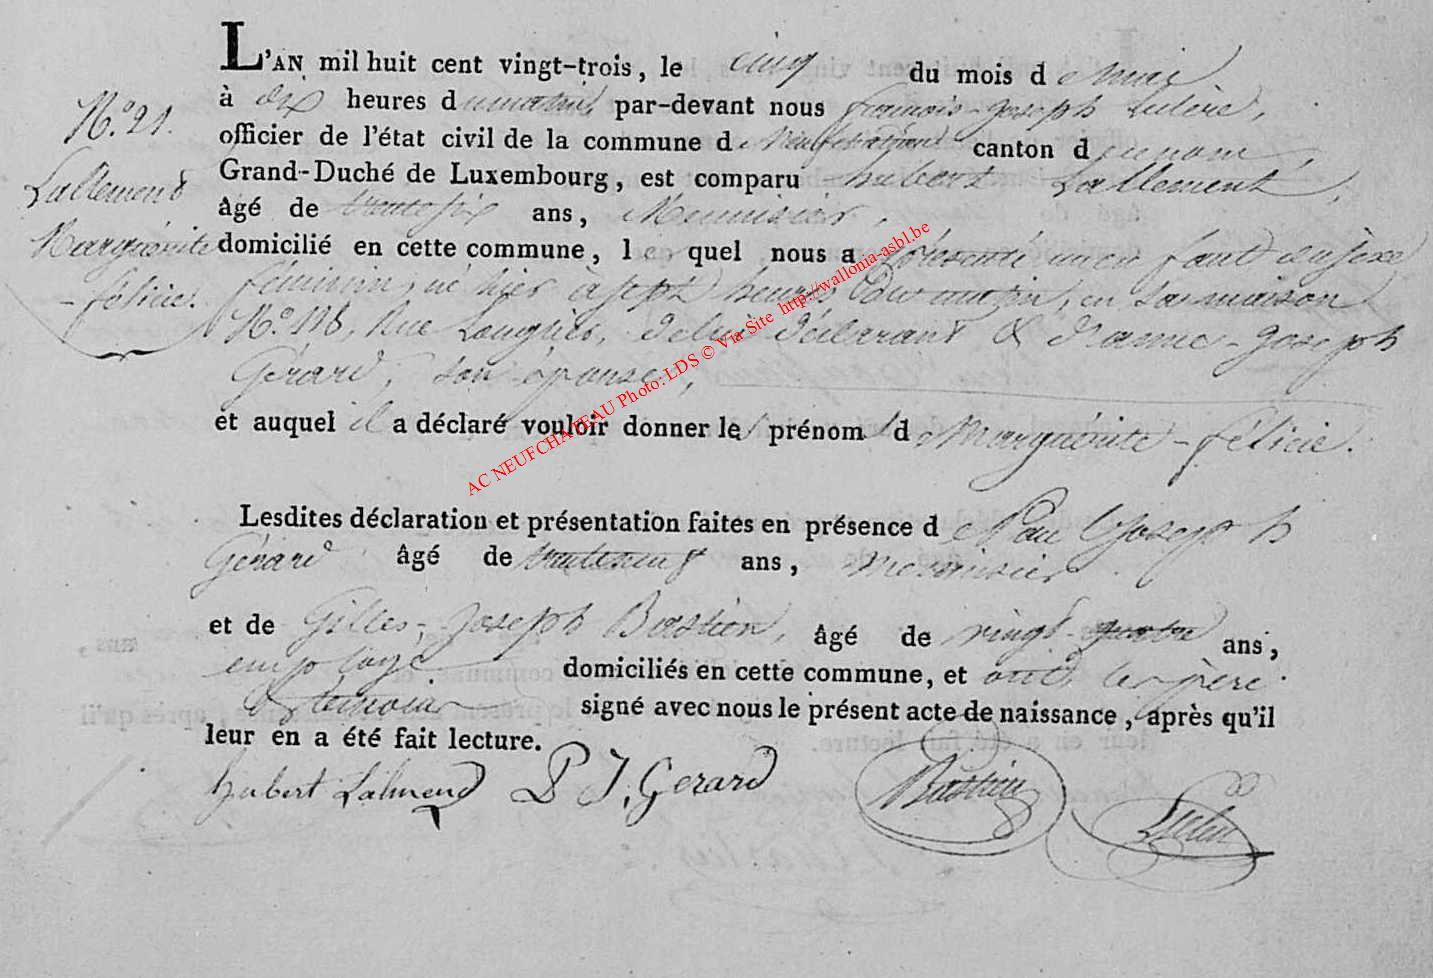 L'AN mil huit cent vingt-trois, le cinq du mois de mai
N.° 21.
à dix heures du matin, par-devant nous françois-joseph
officier de l'état civil de la commune de Neufchâteau canton du nom,
Lallemend
Grand-Duché de Luxembourg, est comparu hubert Lallement,
âgé de trente six ans, Menuisier,
Marguerite
domicilié en cette commune, lequel nous a présenté un enfant du sexe
-félicie.
féminin, né hier à sept heures du matin, en sa maison
N.° 118, Rue Longues, de lui déclarant & d'anne-joseph
Gérard, son épouse,
et auquel il a déclaré vouloir donner les prénoms de Marguerite-félicie.
AC NEUFCHATEAU Photo: LDS © Via Site http://wallonia-asbl.be
Lesdites déclaration et présentation faites en présence de Paul Joseph
Gérard âgé de trente neuf ans, menuisier
et de Gilles-Joseph Bastien, âgé de vingt-quatre ans,
employé. domiciliés en cette commune, et ont les père
& témoins signé avec nous le présent acte de naissance, après qu'il
leur en a été fait lecture.
hubert Lalmend P J. Gerard Bastien